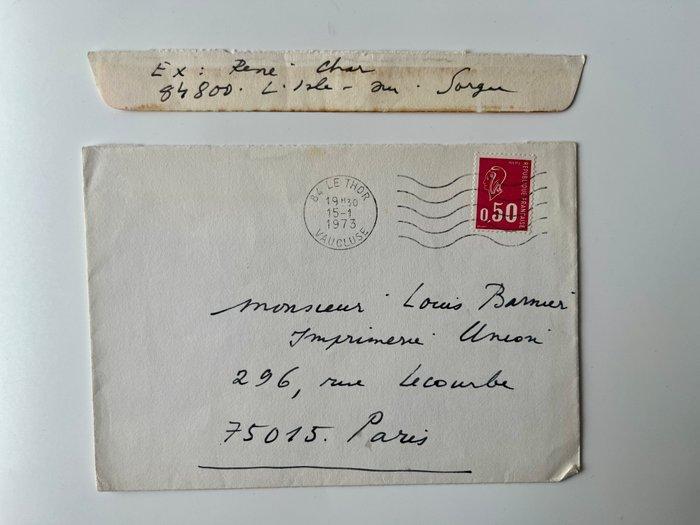 Ex : René Char
84800. L'Isle-sur-Sorgue
84 LE THOR
19H30
15-1
1973
VAUCLUSE
REPUBLIQUE FRANÇAISE
0,50
Monsieur Louis Barnier
Imprimerie Union
296, rue Lecourbe
75015. Paris